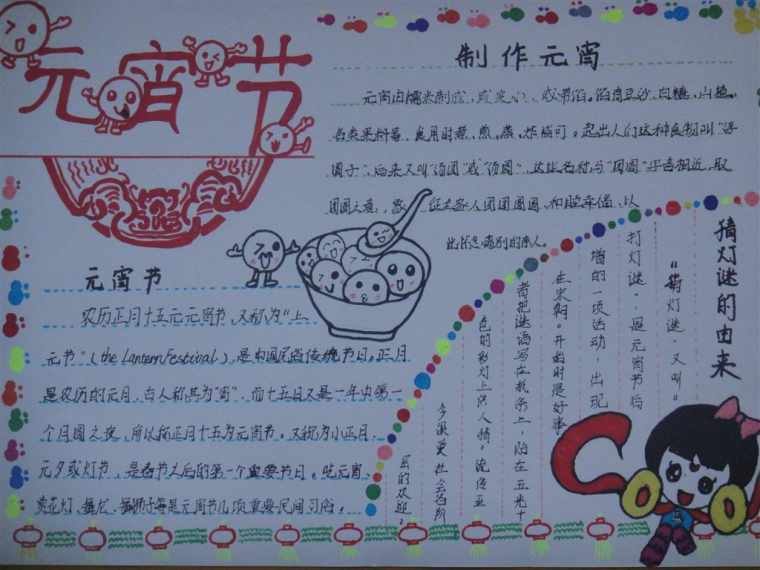 元宵节
制作元宵
元宵由糯米制成,或实心,或带馅。馅有豆沙、白糖、山楂、
各类果料等,食用时煮、煎、蒸、炸皆可。起初人们这种食物叫“浮
圆子”,后来又叫“汤团”或“汤圆”,这些名称与“团圆”字音相近,取
团圆之意,象征全家人团团圆圆,和睦幸福,以
此怀念离别的亲人。
元宵节
农历正月十五元元宵节,又称为“上
元节”(the Lantern Festival),是中国民俗传统节日。正月
是农历的元月,古人称其为“宵”,而十五日又是一年中第一
个月圆之夜,所以称正月十五为元宵节。又称为小正月、
元夕或灯节,是春节之后的第一个重要节日。吃元宵、
赏花灯、舞龙、舞狮子等是元宵节几项重要民间习俗。
猜灯谜的由来
“猜灯谜”又叫“
打灯谜”是元宵节后
增的一项活动,出现
在宋朝。开始时是好事
者把谜语写在纸条上,贴在五光十
色的彩灯上供人猜。
今很受社会各阶
层的欢迎。